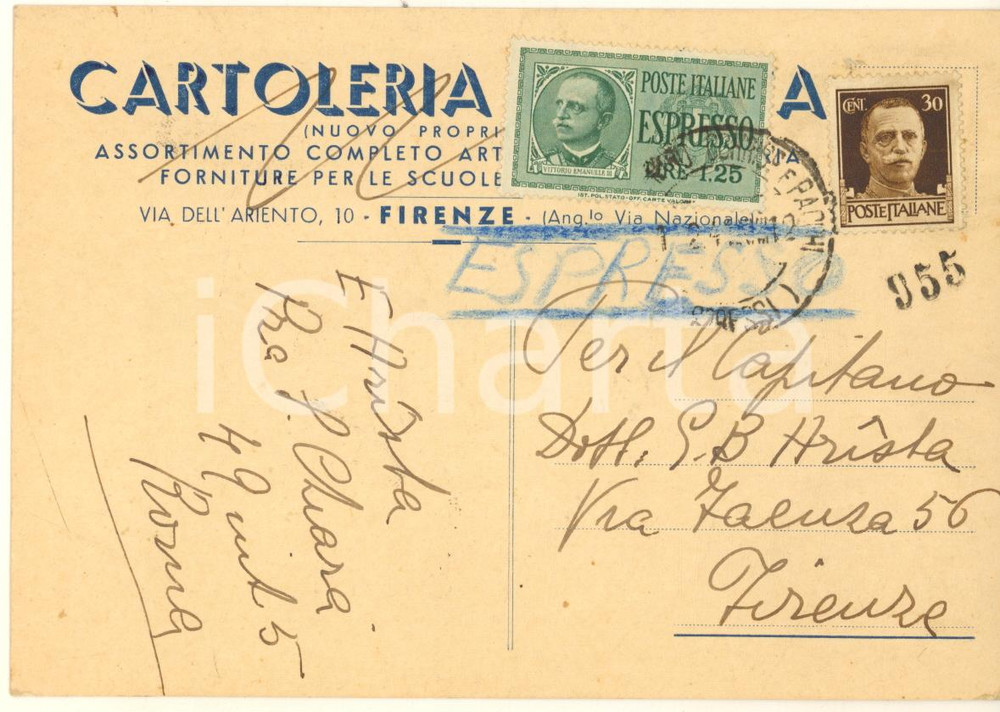 CARTOLERIA A
(NUOVO PROPRI
ASSORTIMENTO COMPLETO ART
FORNITURE PER LE SCUOLE
VIA DELL'ARIENTO, 10 - FIRENZE - (Ang.lo Via Nazionale)
POSTE ITALIANE
ESPRESSO
LIRE 1.25
VITTORIO EMANUELE III
IST. POL. STATO-OFF. CARTE VALORI
CENT. 30
POSTE ITALIANE
ESPRESSO
955
Per il Capitano
Dott. G. B. Arista
Via Faenza 56
Firenze
E Arista
Via S. Chiara
49 int 5
Roma
iCharta